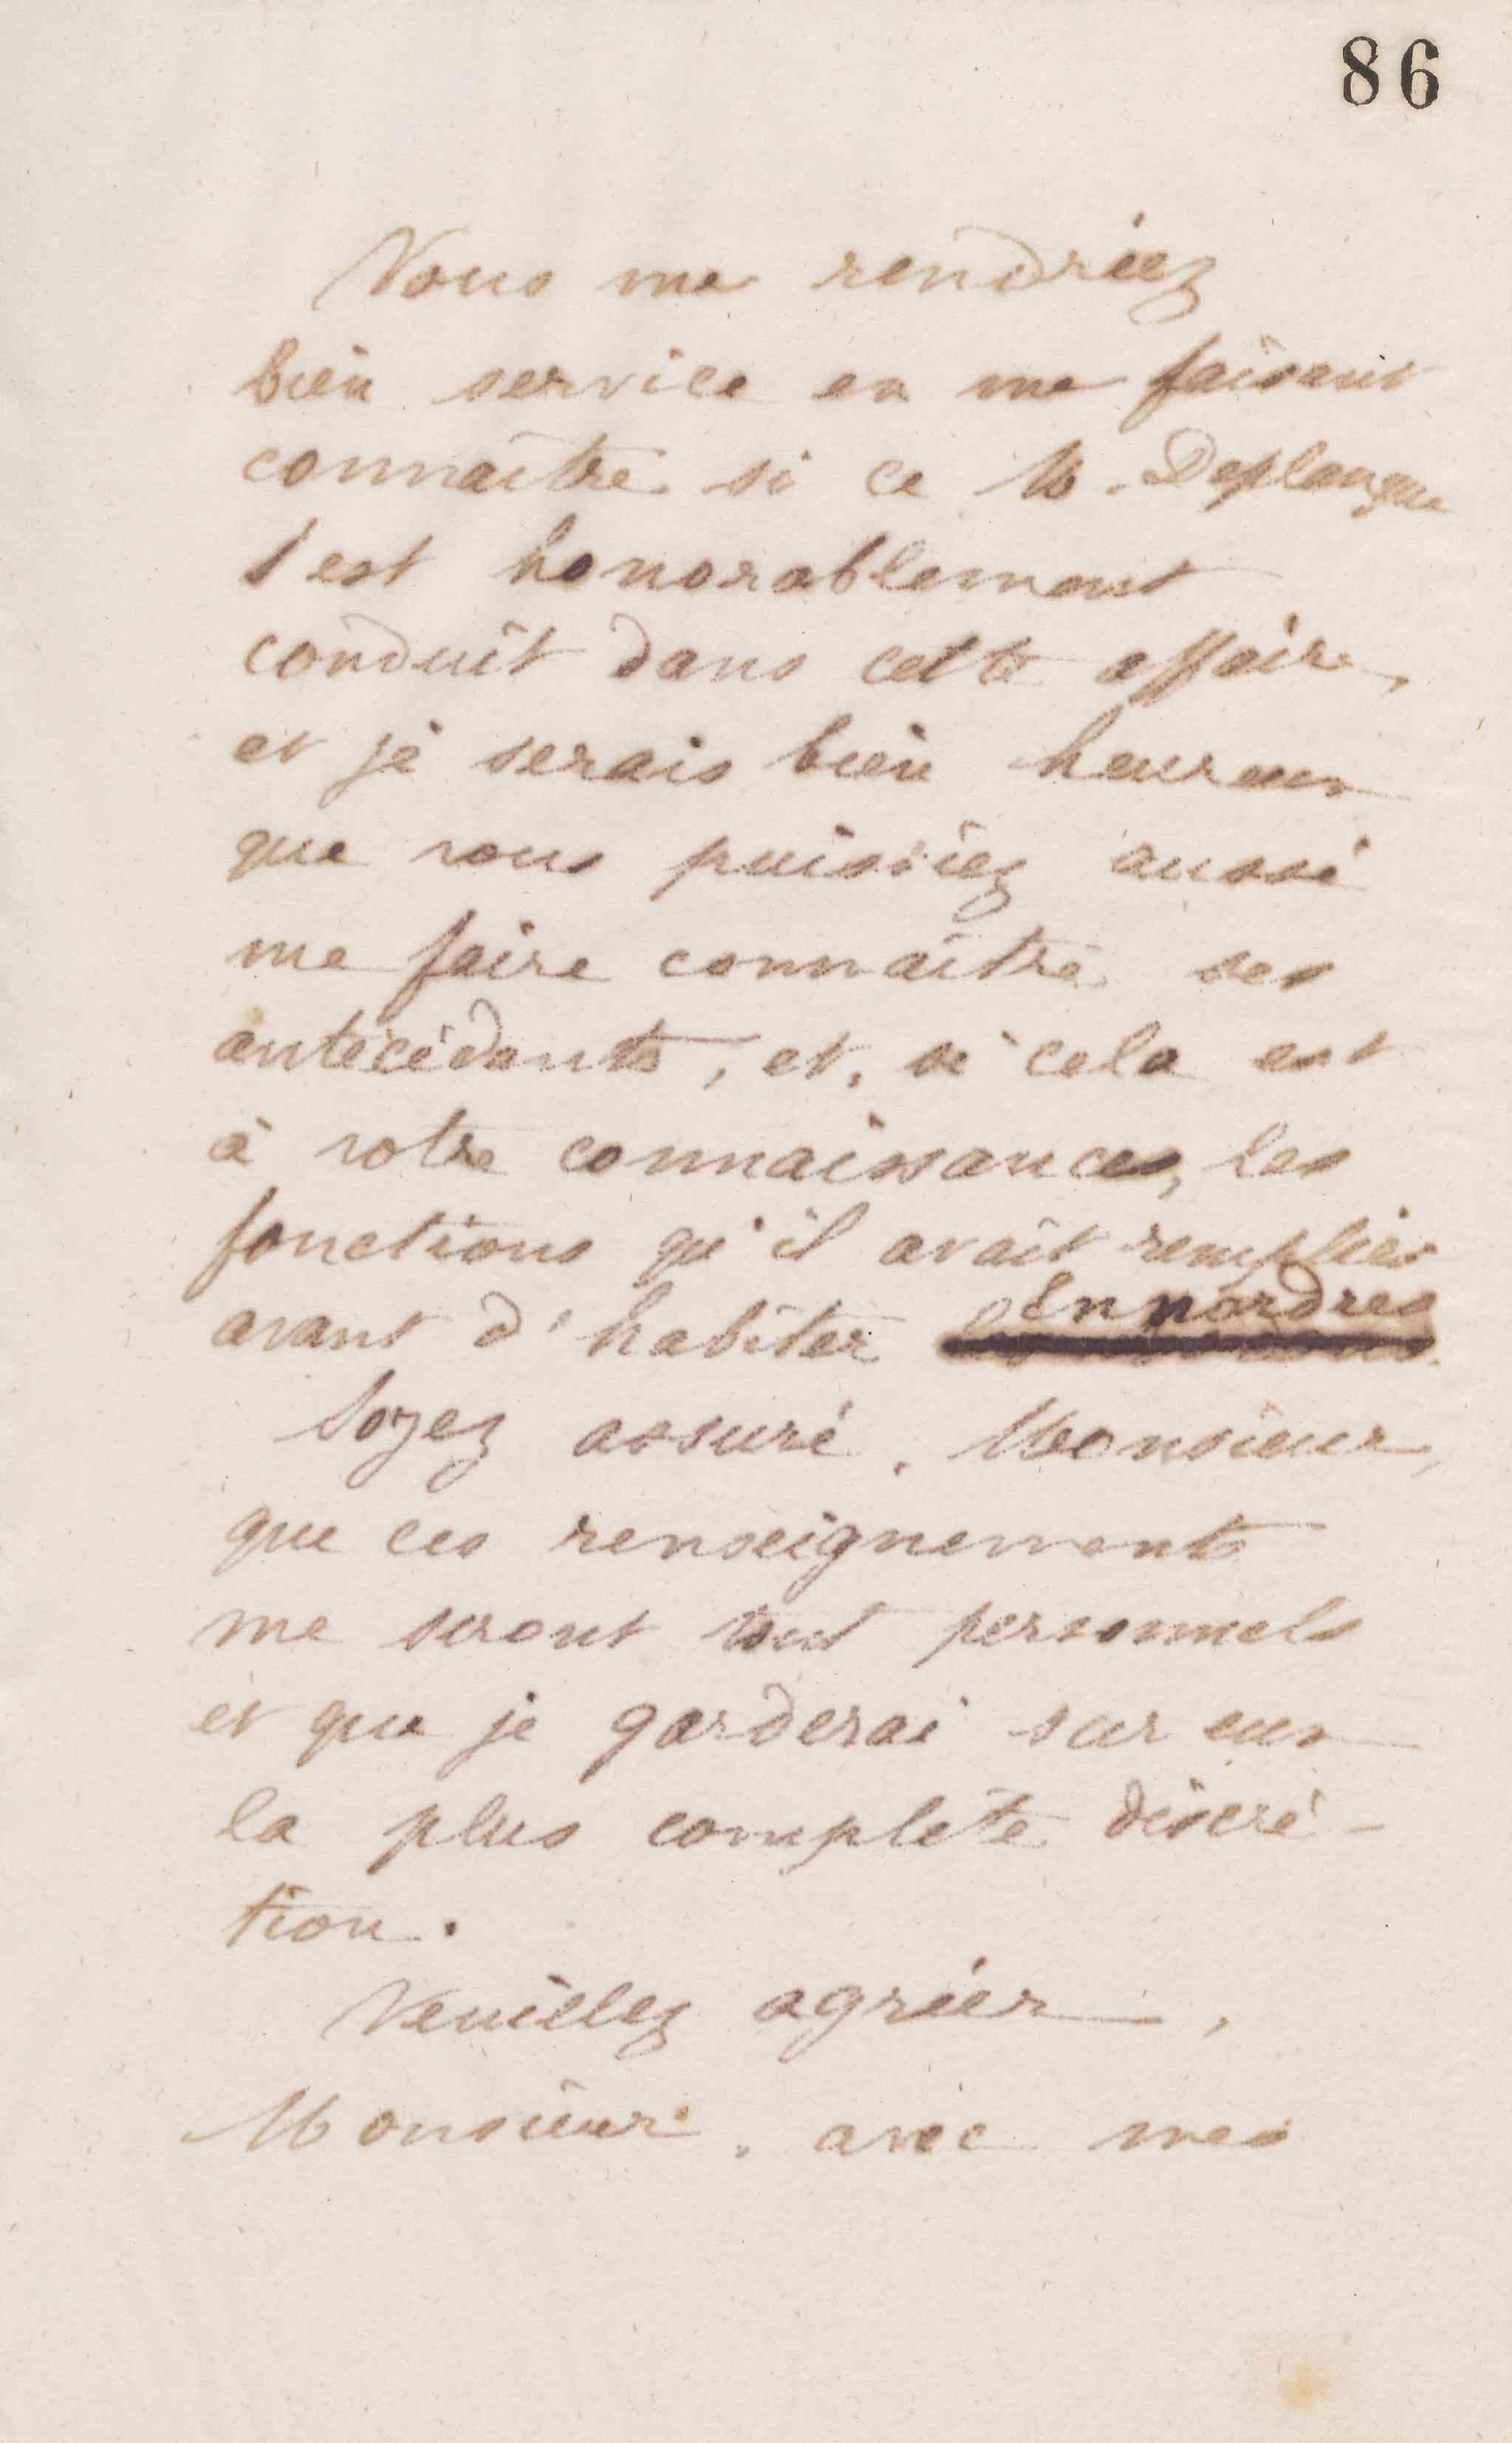 86
Vous me rendriez
bien service en me faisant
connaître si ce M. Deplanque
s'est honorablement
conduit dans cette affaire,
et je serais bien heureux
que vous puissiez aussi
me faire connaître ses
antécédents, et, si cela est
à votre connaissance, les
fonctions qu'il avait remplies
avant d'habiter Ennordres
Soyez assuré, Monsieur,
que ces renseignements
me seront tout personnels
et que je garderai sur eux
la plus complète discré-
tion.
Veuillez agréer,
Monsieur, avec mes